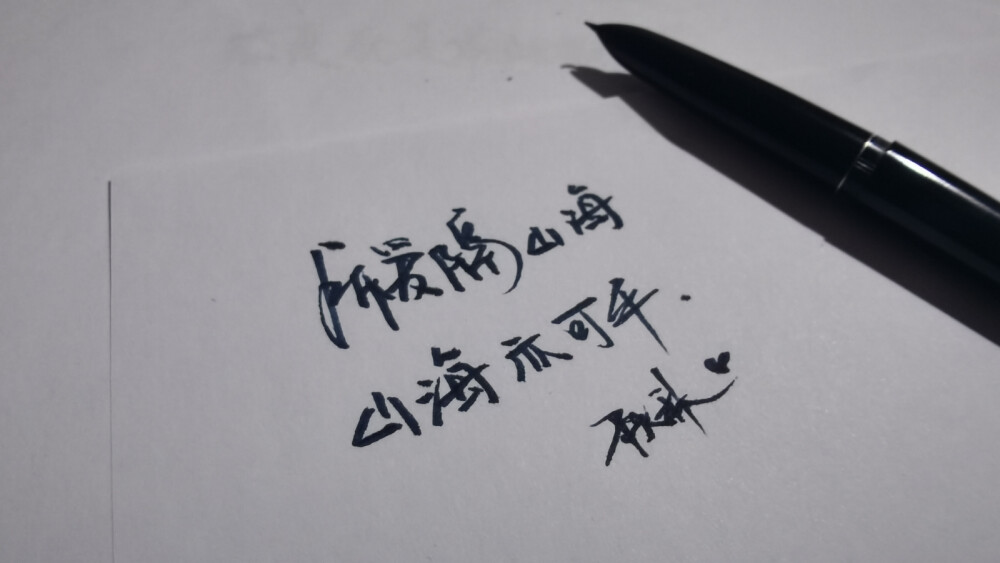 所爱隔山海
山海亦可平.